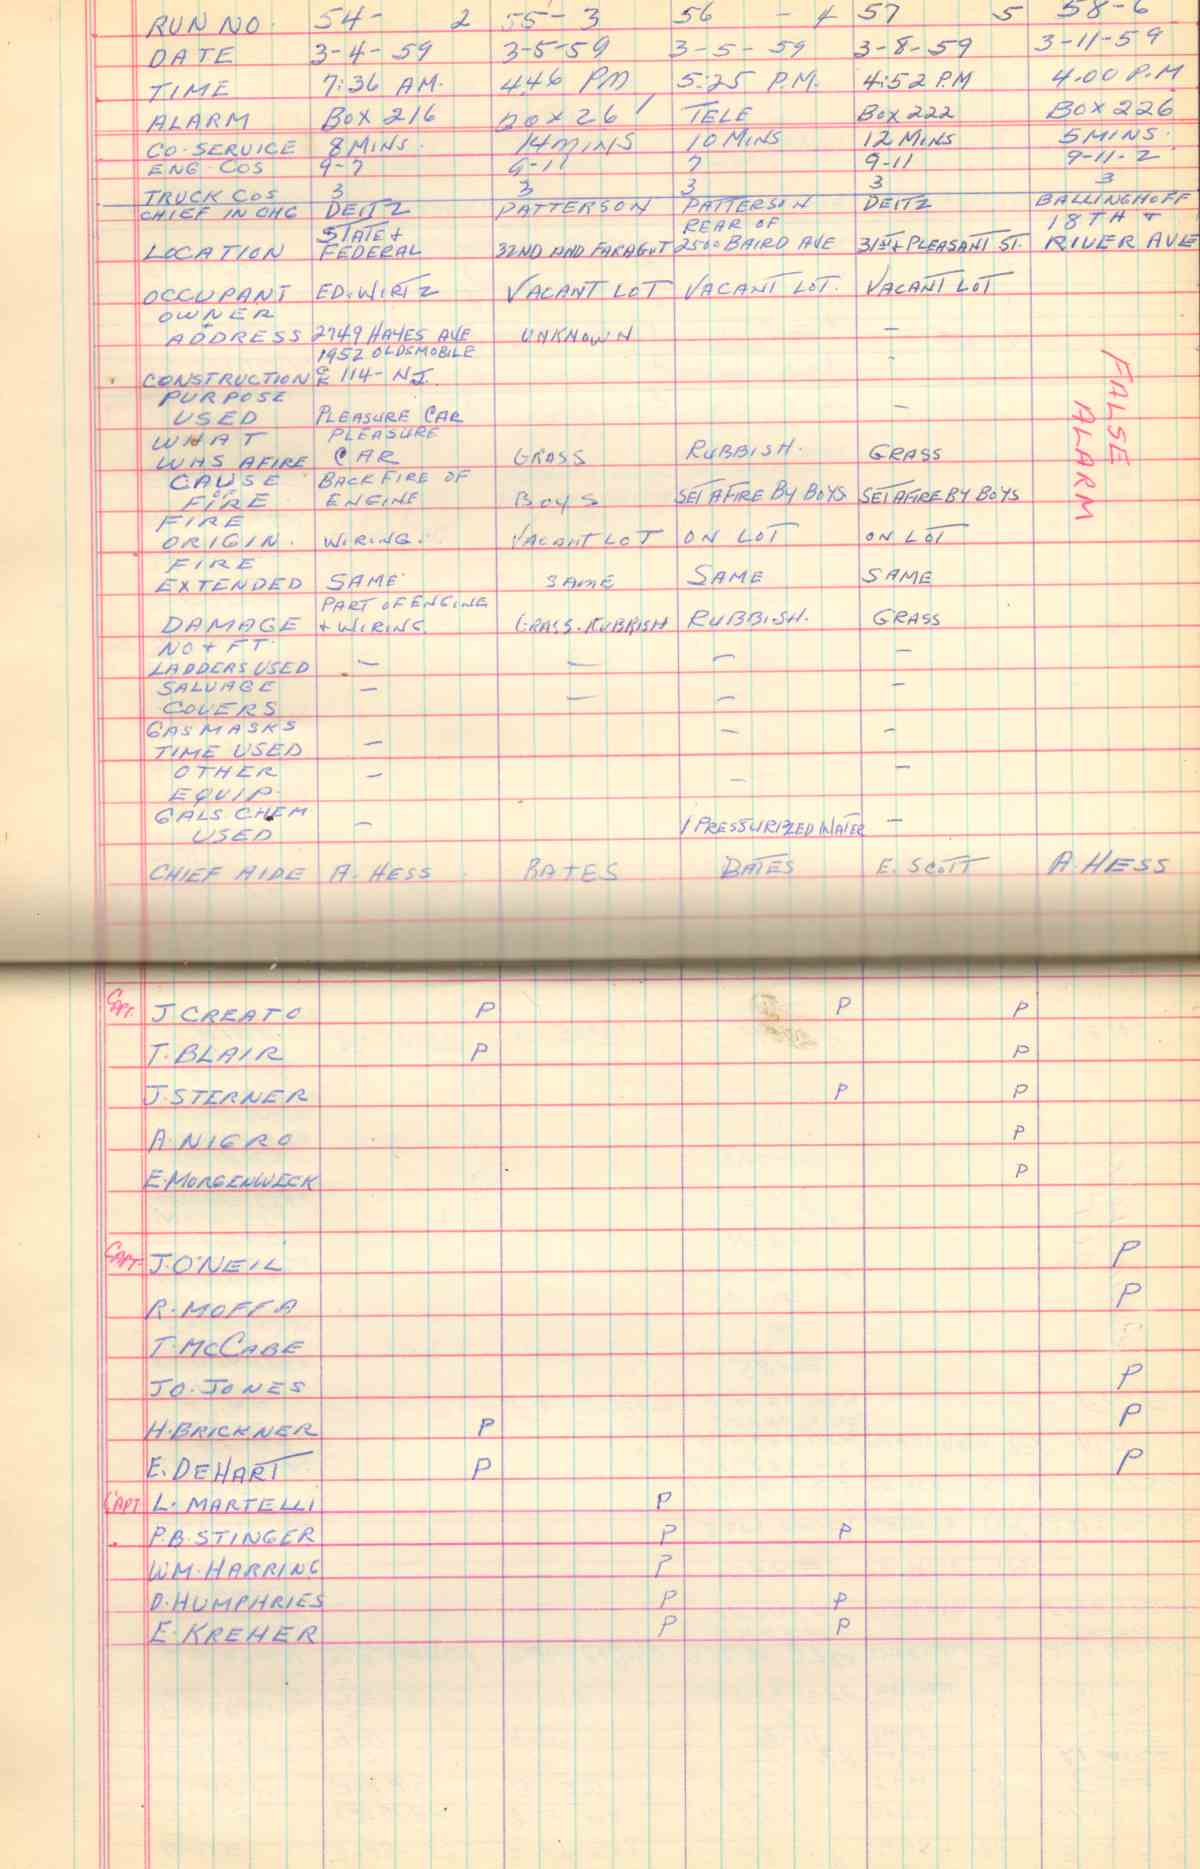 RUN NO. 54- 2 55- 3 56 - 4 57 5 58-6
DATE 3-4-59 3-5-59 3-5-59 3-8-59 3-11-59
TIME 7:36 AM. 446 PM 5:25 P.M. 4:52 P.M 4.00 P.M
ALARM BOX 216 BOX 26 TELE BOX 222 BOX 226
CO-SERVICE 8 MINS. 14 MINS 10 MINS 12 MINS 5 MINS.
ENG-COS 9-7 9-11 7 9-11 9-11-2
TRUCK COS 3 3 3 3 3
CHIEF IN CHG DEITZ PATTERSON PATTERSON DEITZ BALLINGHOFF
STATE + REAR OF 18TH +
LOCATION FEDERAL 32ND AND FARAGUT 2500 BAIRD AVE 31ST + PLEASANT ST. RIVER AVE
OCCUPANT ED. WIRTZ VACANT LOT VACANT LOT. VACANT LOT
OWNER
ADDRESS 2749 HAYES AVE UNKNOWN —
1952 OLDSMOBILE
CONSTRUCTION 114- NJ.
PURPOSE
USED PLEASURE CAR —
WHAT PLEASURE
WAS AFIRE CAR GRASS RUBBISH. GRASS
CAUSE BACKFIRE OF
OF
FIRE ENGINE BOYS SET AFIRE BY BOYS SET AFIRE BY BOYS
FIRE
ORIGIN. WIRING. VACANT LOT ON LOT ON LOT
FIRE
EXTENDED SAME SAME SAME SAME
PART OF ENGINE
DAMAGE + WIRING GRASS-RUBBISH RUBBISH. GRASS
NO + FT.
LADDERS USED — — — —
SALVAGE — — — —
COVERS
GAS MASKS — —
TIME USED —
OTHER — — —
EQUIP.
GALS CHEM
USED — 1 PRESSURIZED WATER —
CHIEF AIDE A. HESS BATES BATES E. SCOTT A. HESS
FALSE
ALARM
CAPT. J CREATO P P P
T. BLAIR P P
J. STERNER P P
A. NIGRO P
E. MORGENWECK P
CAPT. J. O'NEIL P
R. MOFFA P
T. McCABE
JO. JONES P
H. BRICKNER P P
E. DEHART P P
CAPT L. MARTELLI P
P.B. STINGER P P
WM. HARRING P
D. HUMPHRIES P P
E. KREHER P P